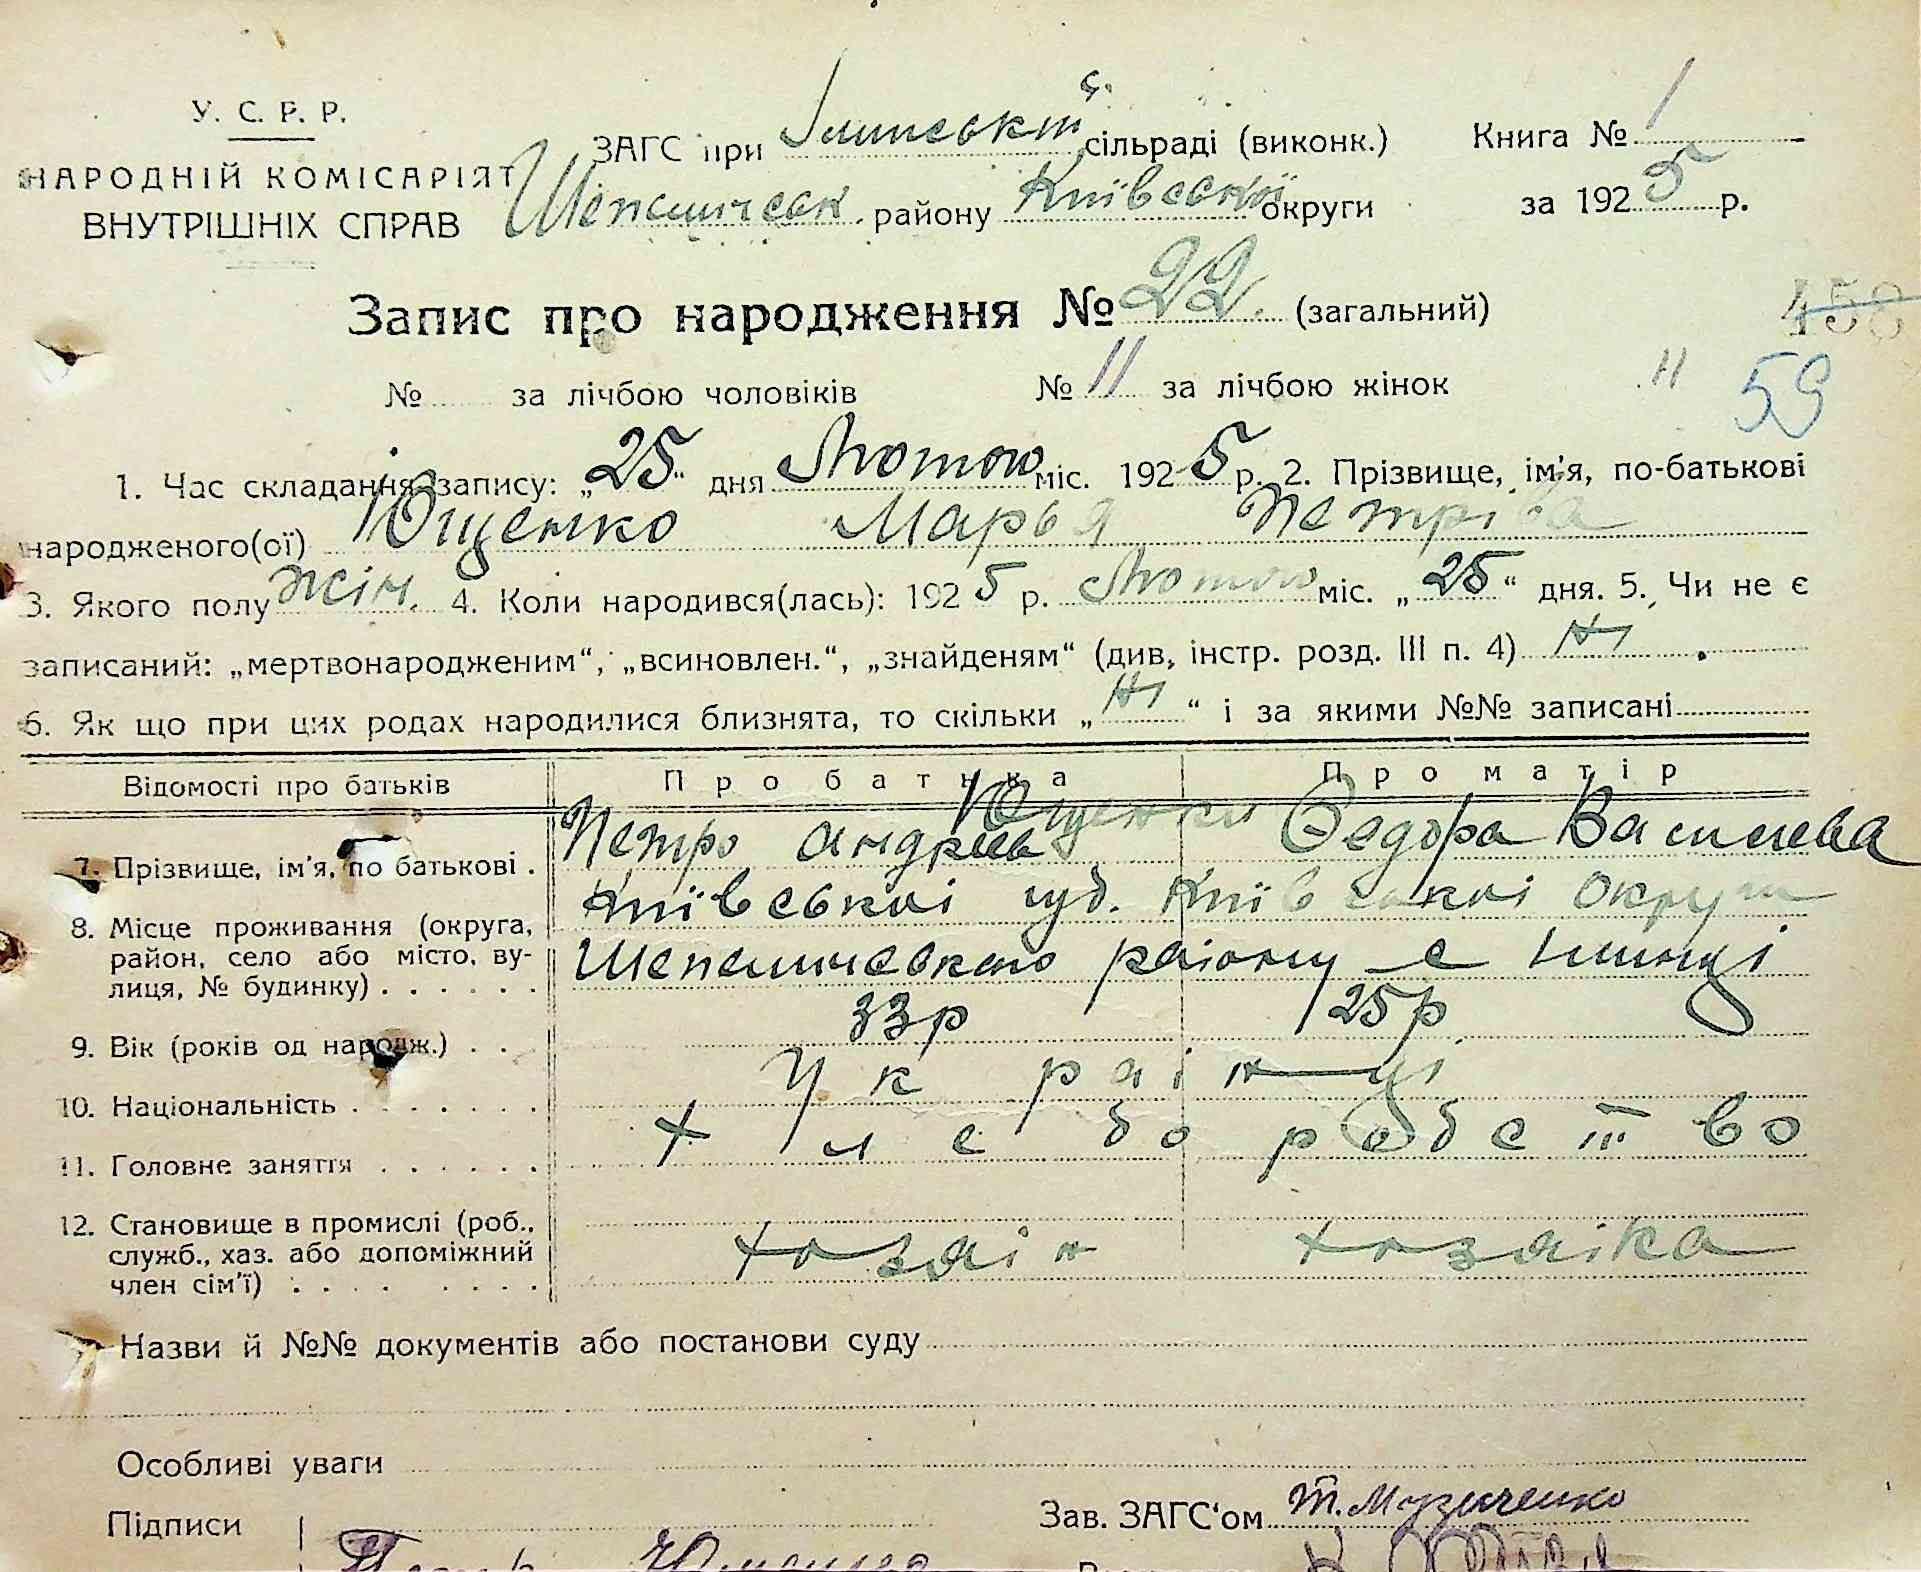 У. С. Р. Р.
НАРОДНІЙ КОМІСАРІЯТ
ВНУТРІШНІХ СПРАВ
ЗАГС при сільраді (виконк.) Книга № 1
району Київської округи за 1925 р.
Запис про народження № 22. (загальний)
458
№ за лічбою чоловіків № 11 за лічбою жінок
" 59
1. Час складання запису: „25“ дня Лютого міс. 1925 р. 2. Прізвище, ім'я, по-батькові
народженого(ої) Ющенко Марья Петріва
3. Якого полу жін. 4. Коли народився(лась): 1925 р. Лютого міс. „25“ дня. 5. Чи не є
записаний: „мертвонародженим“, „всиновлен.“, „знайденям“ (див. інстр. розд. III п. 4) Ні
6. Як що при цих родах народилися близнята, то скільки „Ні“ і за якими №№ записані
Відомості про батьків Про батька Про матір
Ющенки
7. Прізвище, ім'я, по батькові . Петро Андріев Федора Василева
8. Місце проживання (округа, Київськоі губ. Київськоі округи
район, село або місто, ву-
лиця, № будинку) району с
9. Вік (років од народж.) . . 33р 25р
10. Національність Украінці
11. Головне заняття Хлеборобство
12. Становище в промислі (роб.,
служб., хаз. або допоміжний
член сім'ї) хозаін хозаіка
Назви й №№ документів або постанови суду
Особливі уваги
Підписи Зав. ЗАГС'ом Т. Музиченко